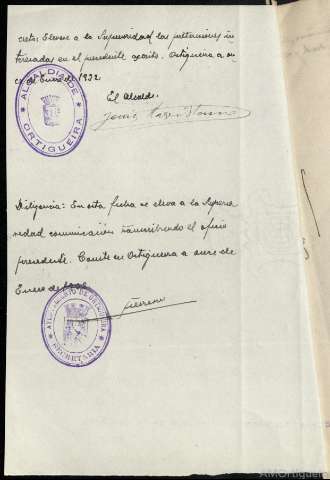 creta: Elevese a la Superioridad las peticiones in
teresadas en el precedente escrito. Ortigueira a on
ce de Enero de 1932
El Alcalde
ALCALDIA DE
ORTIGUEIRA
Diligencia: En esta fecha se eleva a la Superio
ridad comunicación transcribiendo el oficio
precedente. Conste en Ortigueira a once de
Enero de
AYUNTAMIENTO DE ORTIGUEIRA
SECRETARIA
AMOrtigueira